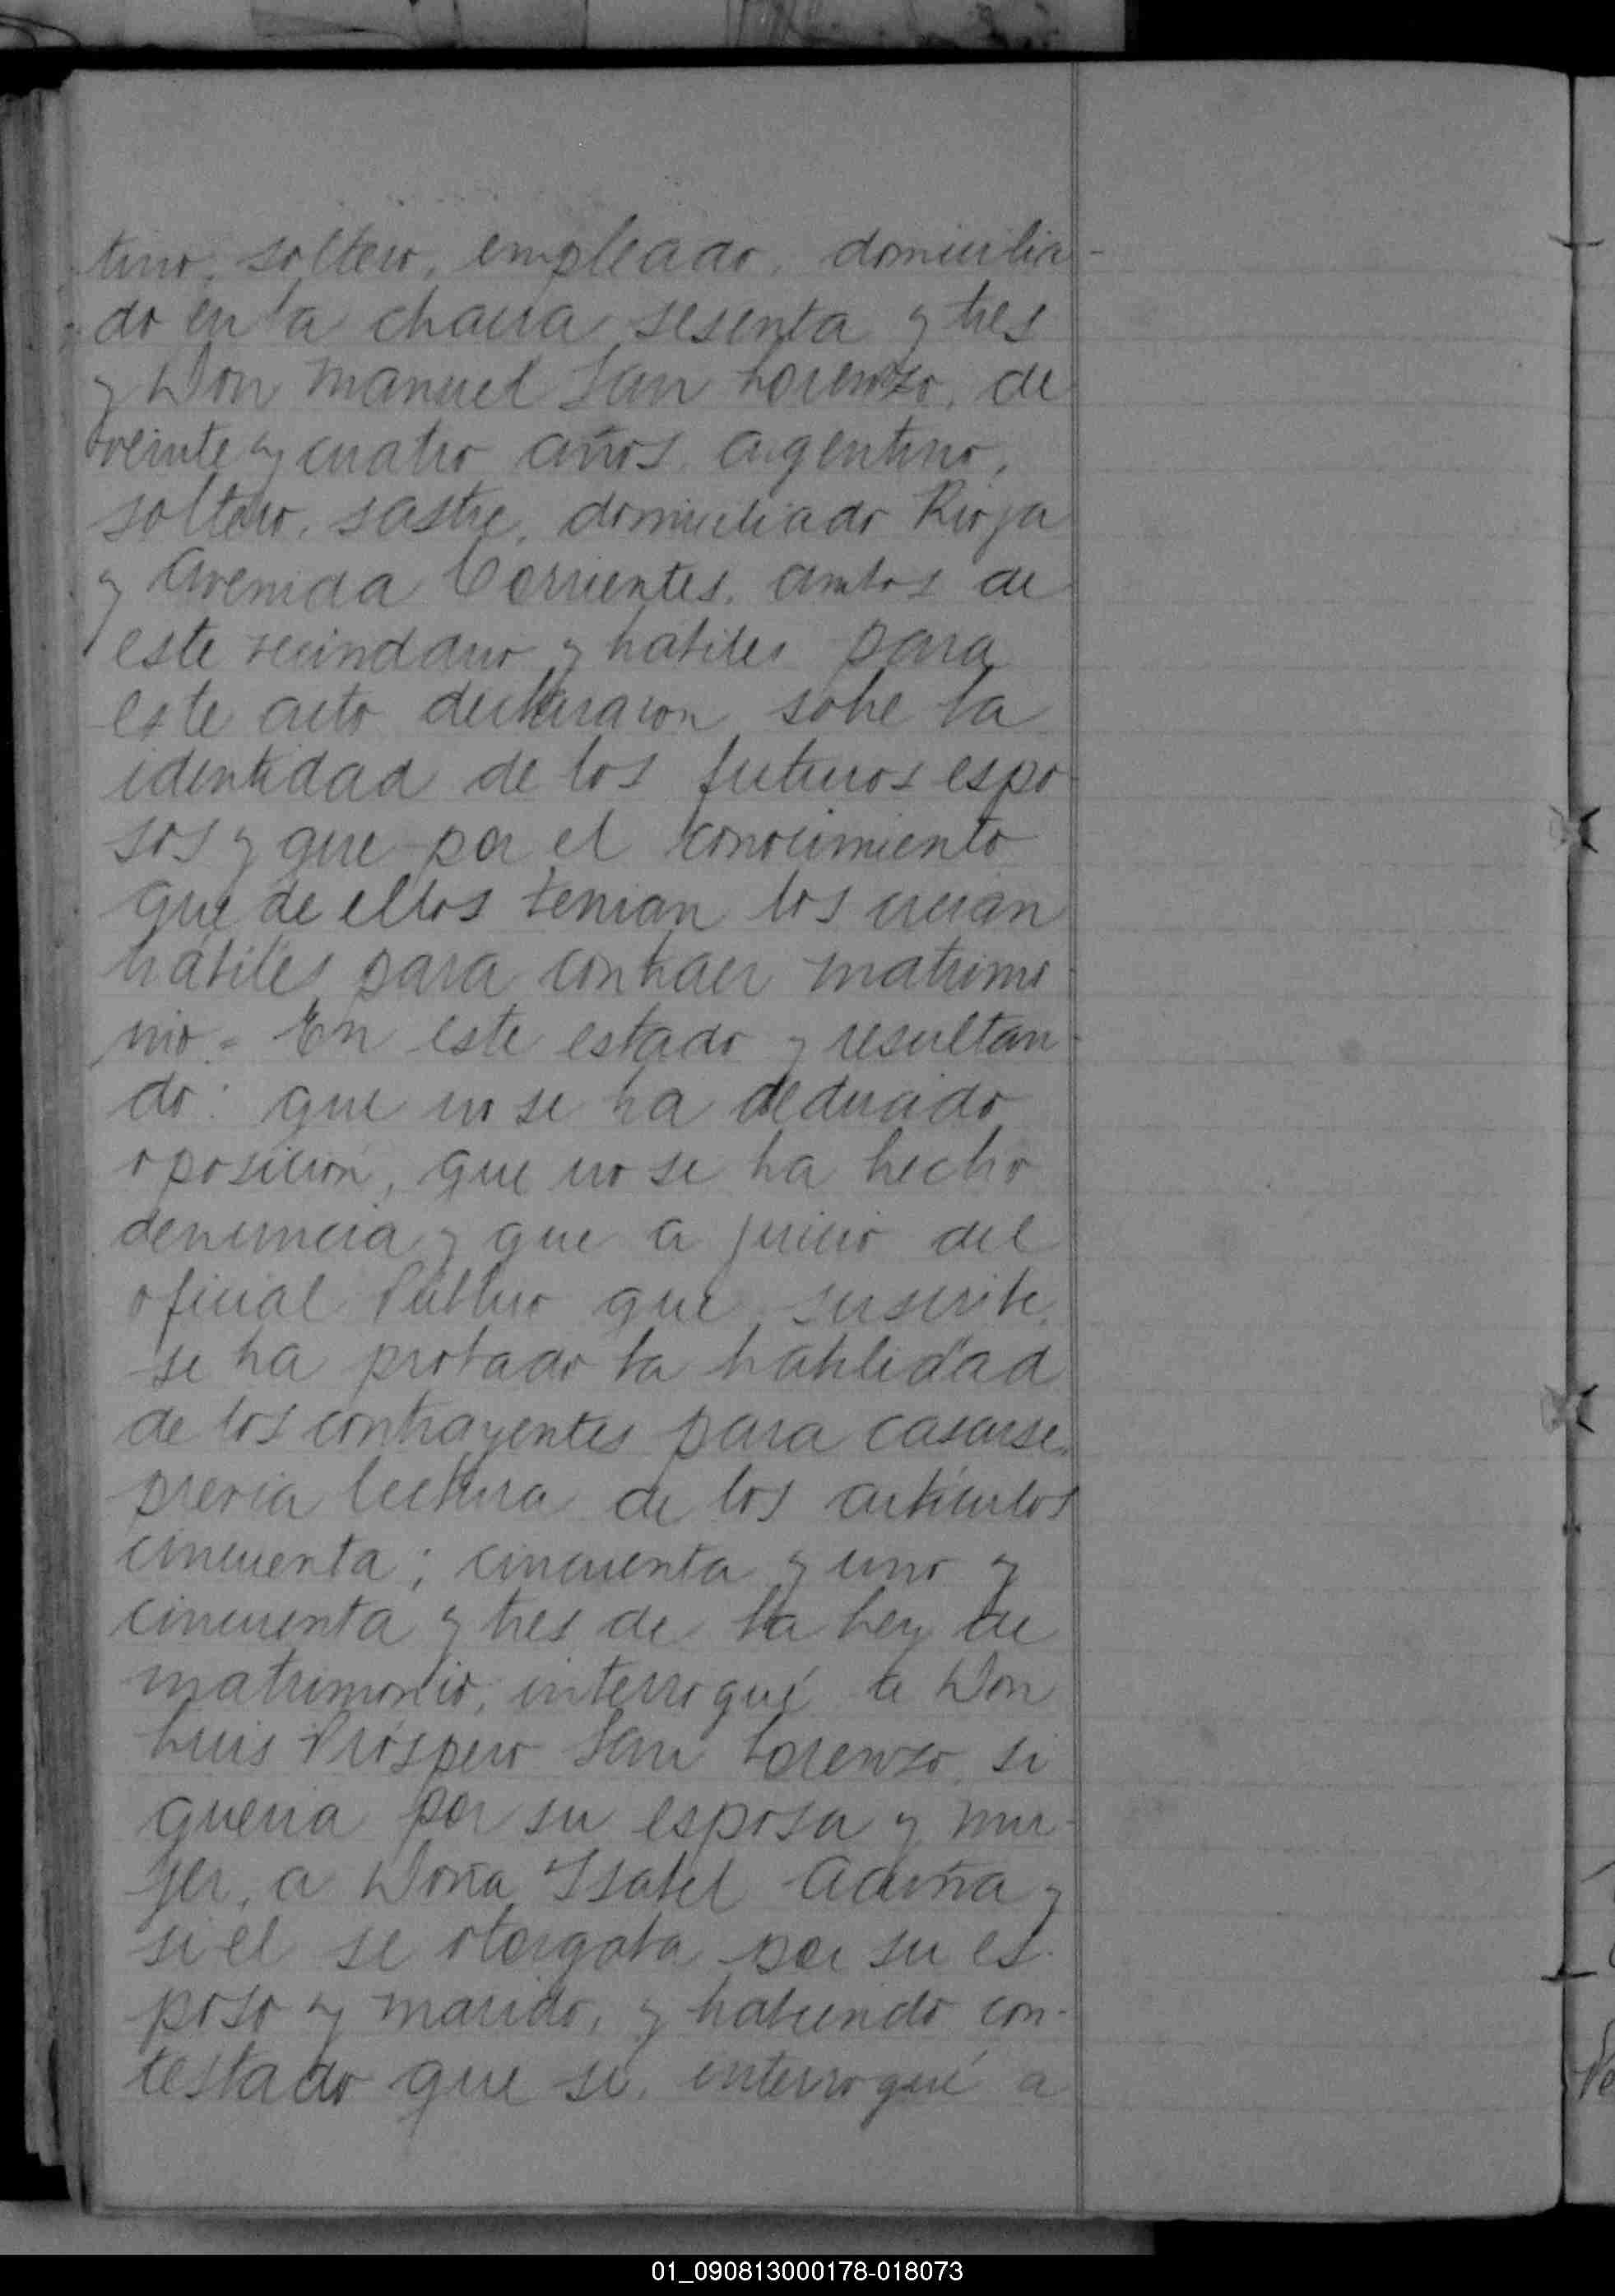 tino, soltero, empleado, domicilia-
do en la chacra sesenta y tres
y Don Manuel San Lorenzo, de
veinte y cuatro años, argentino,
soltero, sastre, domiciliado Rioja
y Avenida Corrientes, ambos de
este vecindario y habiles para
este acto declararon sobre la
identidad de los futuros espo-
sos y que por el conocimiento
que de ellos tenian los creian
habiles para contraer matrimo-
nio.= En este estado y resultan-
do: que no se ha deducido
oposición, que no se ha hecho
denuncia y que a juicio del
oficial Público que suscribe,
se ha probado la habilidad
de los contrayentes para casarse,
previa lectura de los artículos
cincuenta; cincuenta y uno y
cincuenta y tres de la Ley de
matrimonio, interrogué a Don
Luis Próspero San Lorenzo, si
queria por su esposa y mu-
jer, a Doña Isabel Acuña y
si el se otorgaba por su es-
poso y marido, y habiendo con-
testado que si, interrogué a
01_090813000178-018073